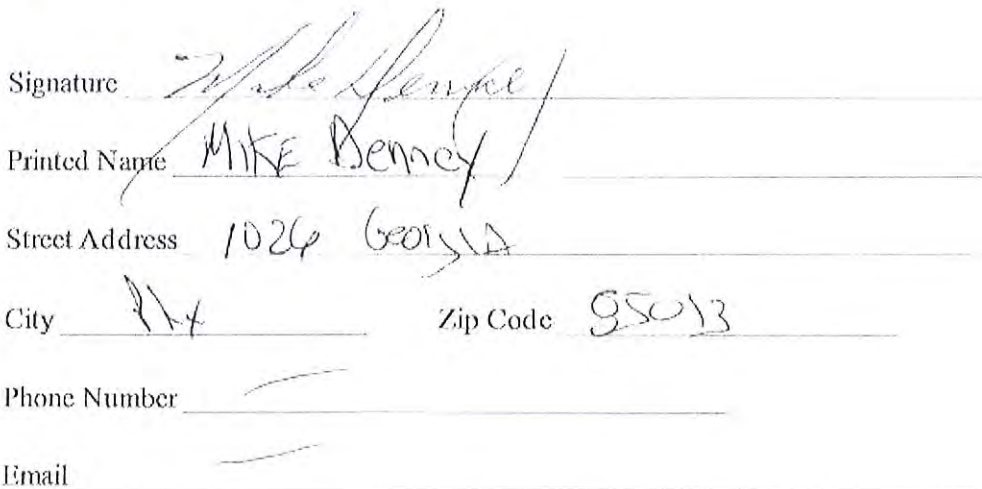 Signature Mike Denney
Printed Name MIKE Denney
Street Address 1026 Georgia
City Phx Zip Code 85013
Phone Number —
Email —